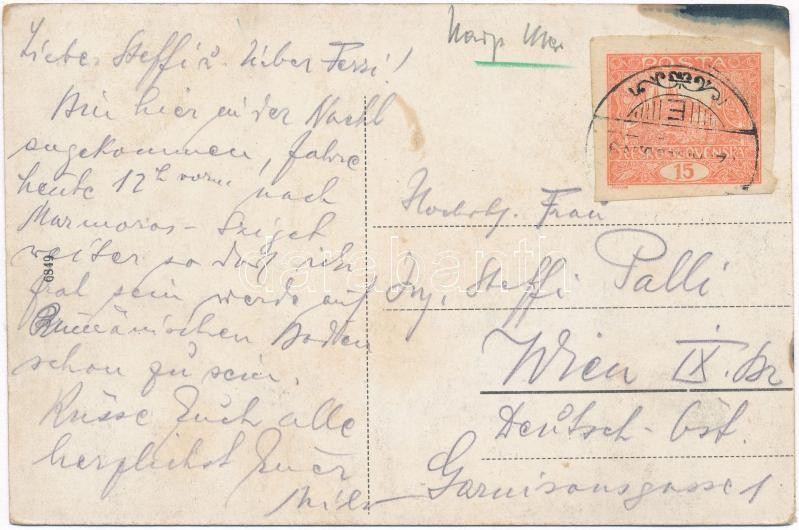 Liebe Steffi u. lieber Ferri!
Bin hier in der Nacht
angekommen, fahre
heute 12h vorm. nach
Marmaros-Sziget
weiter so daß ich
froh sein werde auf
Rumänischen Boden
schon zu sein.
Küsse Euch alle
herzlichst Euer
6849
POSTA
ČESKOSLOVENSKÁ
15
Hochwg. Frau
Ing. Steffi Palli
Wien IX. Bz
Deutsch-Öst.
Garnisonsgasse 1
darabanth